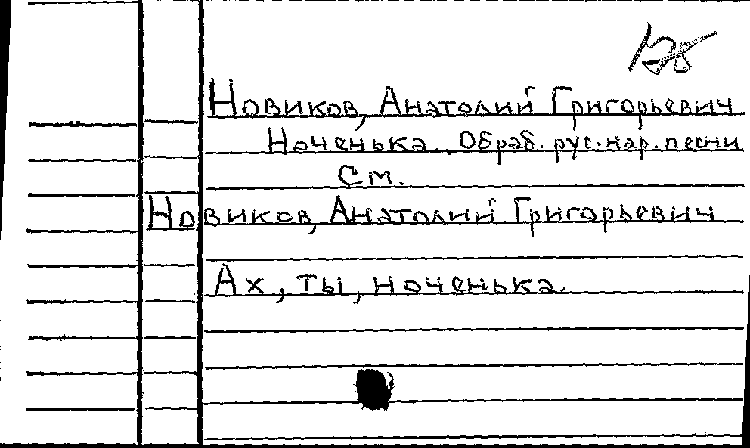 Новиков, Анатолий Григорьевич
Ноченька. Обраб. рус. нар. песни
См.
Новиков, Анатолий Григорьевич
Ах, ты, ноченька.